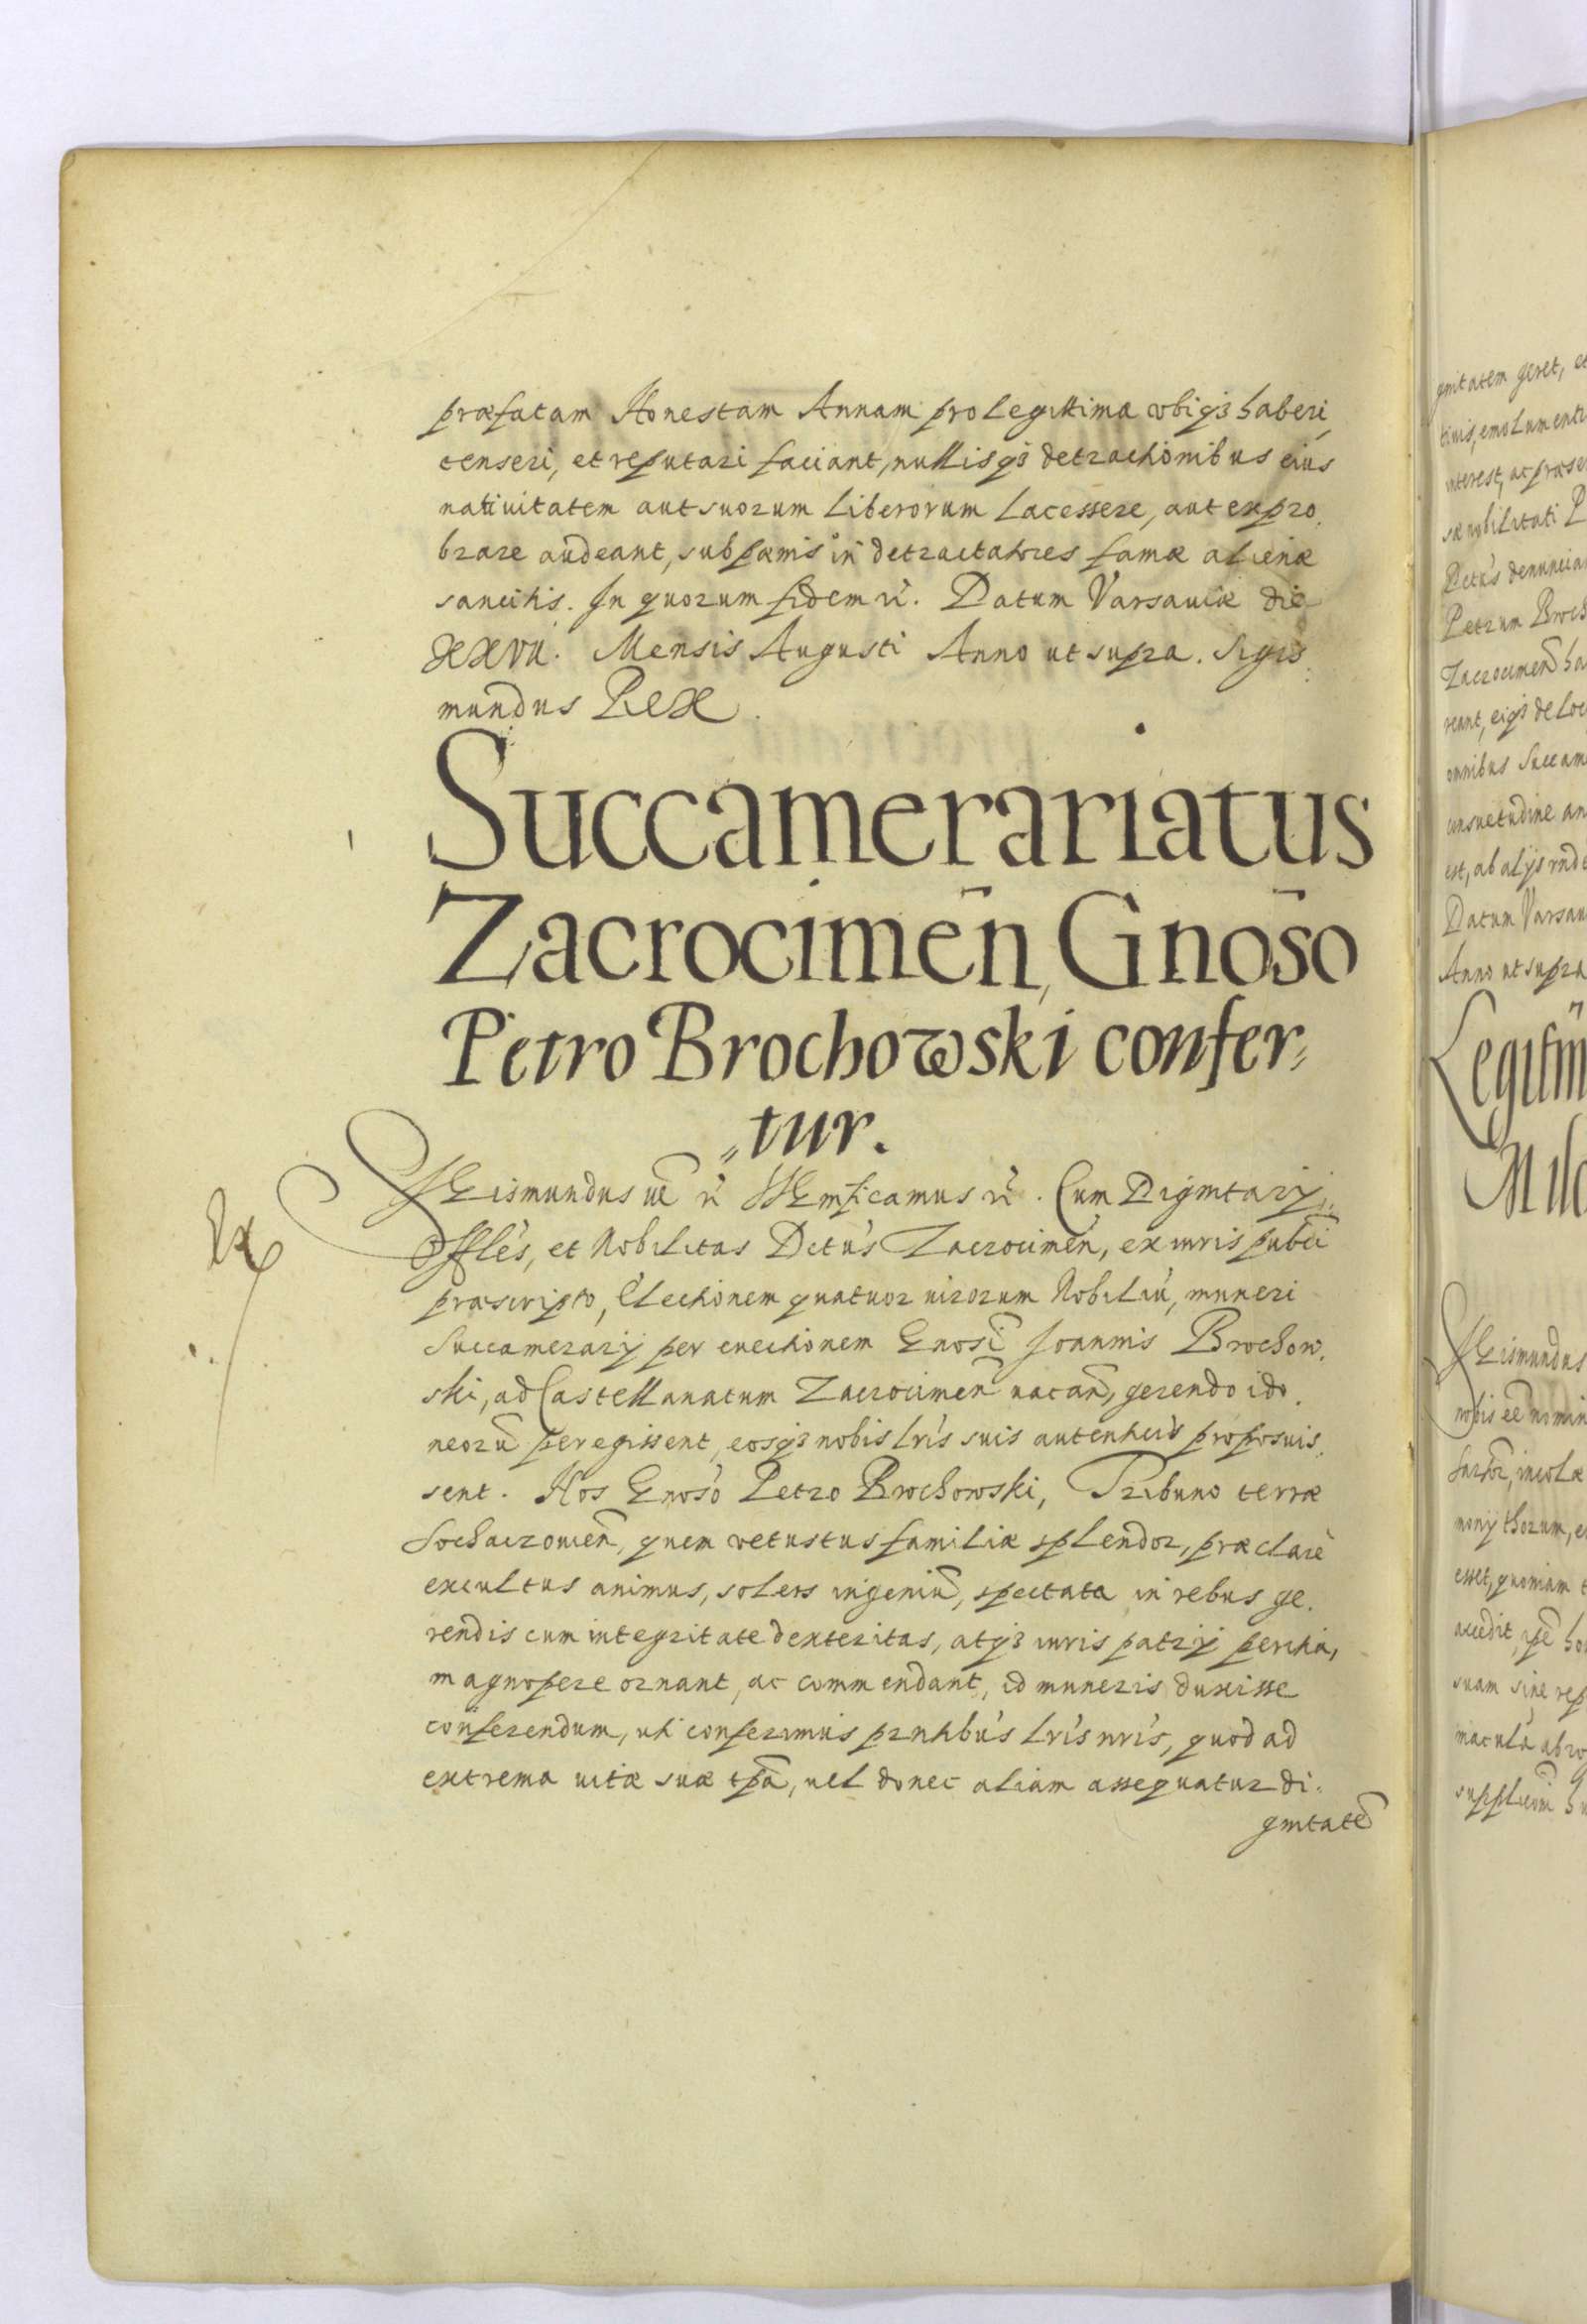 præfatam Honestam Annam pro legittima vbiqȝ haberi,
censeri, et reputari faciant, nullisqȝ detractionibus eius
natiuitatem aut suorum liberorum lacessere, aut expro,
brare audeant, sub pænis in detractatores famæ alienæ
sancitis. In quorum fidem rć. Datum Varsauiæ die
XXVII. Mensis Augusti Anno ut supra. Sigis,
mundus Rex.
Succamerariatus
Zacrocimeñ, Gnoso
Petro Brochowski confer=
=tur.
SIGismundus rć SIGnificamus rć. Cum Dignitarij,
Offles, et Nobilitas Dctus Zacrocimeñ, ex iuris publi
præscripto, Electionem quatuor uirorum Nobiliũ, muneri
Succamerarij per euectionem Gnosi Joannis Brochow,
ski, ad Castellanatum Zacrocimeñ uacañ, gerendo ido,
neorũ peregissent, eosqȝ nobis lris suis autenticis proposuis,
sent. Nos Gnoso Petro Brochowski, Tribuno terræ
Sochaczouień, quem vetustus familiæ splendor, præclarè
excultus animus, solers ingeniũ, spectata in rebus ge,
rendis cum integritate dexteritas, atqȝ iuris patrij peritia,
magnopere ornant, ac commendant, id muneris duxisse
conferendum, uti conferimus pntibus lris nris, quod ad
extrema uitæ suæ tpa, uel donec aliam assequatur di,
gnitatẽ
gnitatem geret, et
interest, ac
Dctus denuncia
Petrum Broch
Zacrocimeñ ha
reant, eiqȝ de loc
omnibus Succam
consuetudine an
est, ab alijs
Datum Varsau
Anno ut supra
Legitim
Mila
SIGismundus
nobis eẽ nomin
incolæ
esset, quoniam
accedit,
suam sine rep
macula ab